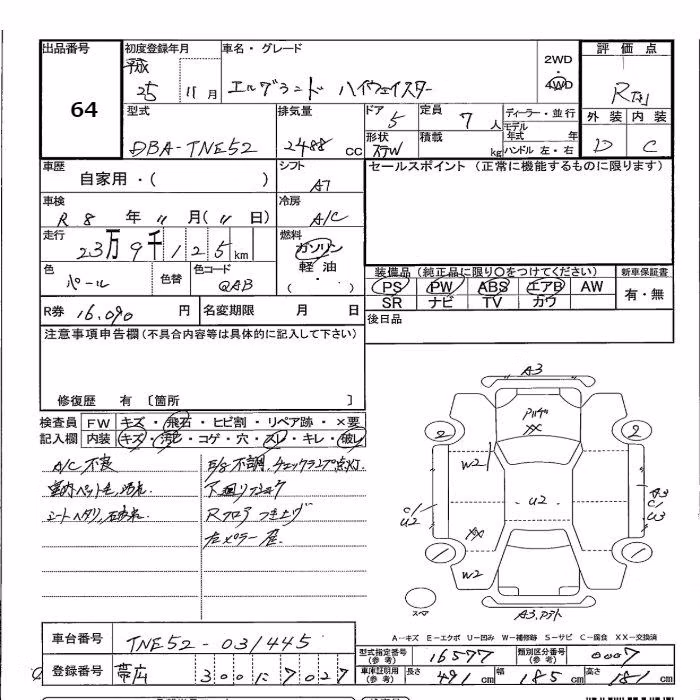 出品番号
64
初度登録年月
平成
25 11 月
車名・グレード
エルグランド ハイウェイスター
2WD
・
4WD
評価点
外装 内装
D C
型式
DBA-TNE52
排気量
2488 CC
ドア
5
定員
7 人
形状
ステW
積載
kg
ディーラー・並行
モデル
年式 年
ハンドル 左・右
車歴
自家用・( )
シフト
AT
セールスポイント (正常に機能するものに限ります)
車検
R 8 年 11 月 ( 11 日)
冷房
A/C
走行
23万9千125km
燃料
ガソリン
軽油
( ・ )
色
パール
色替
色コード
QAB
装備品 (純正品に限り○をつけてください)
PS PW ABS エアB AW
SR ナビ TV カワ
新車保証書
有・無
R券 16,090 円
名変期限 月 日
後日品
注意事項申告欄(不具合内容等は具体的に記入して下さい)
修復歴 有 〔箇所 〕
検査員
記入欄
FW キズ・飛石・ヒビ割・リペア跡・×要
内装 キズ・汚れ・コゲ・穴・スレ・キレ・破レ
A/C 不良
室内ペット毛、汚れ
E/g 不調、チェックランプ点灯
下廻リ
Rフロア つき上げ
左メーラー
A3
XX
2 2
W2
U2
C1
U2
A3
C1
U3
XX
W2
1 1
スペア
A3
A-キズ E-エクボ U-凹み W-補修跡 S-サビ C-腐食 XX-交換済
車台番号
TNE52-031445
登録番号
帯広 300 に 7027
型式指定番号
(参考)
16577
類別区分番号
(参考)
0007
車庫証明用
(参考)
長さ
491 cm
幅
185 cm
高さ
181 cm